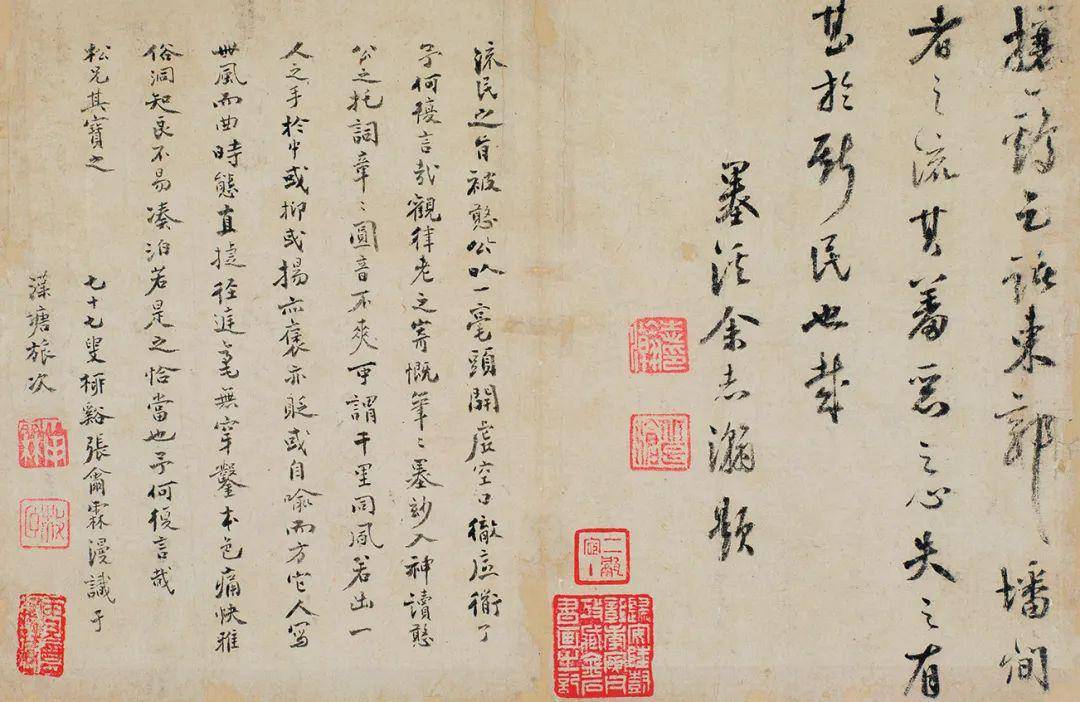 攘一鷄之訨東郭墦間
者之流其羞惡之心失之有
甚於斯民也哉
墨溪余志瀚題
流民之旨被憨公以一毫頭開虛空口徹底衒了
予何復言哉觀律老之寄慨筆〻墨妙入神讀憨
公之托詞章〻圓音不爽可謂千里同風若出一
人之手於中或抑或揚亦褒亦貶或自喻而方它人寫
世風而曲時態直捷徑庭毫無穿鑿本色痛快雅
俗洞知良不易湊泊若是之恰當也予何復言哉
松兄其寶之
七十七叟栘谿張翕霖漫識于
藻塘旅次